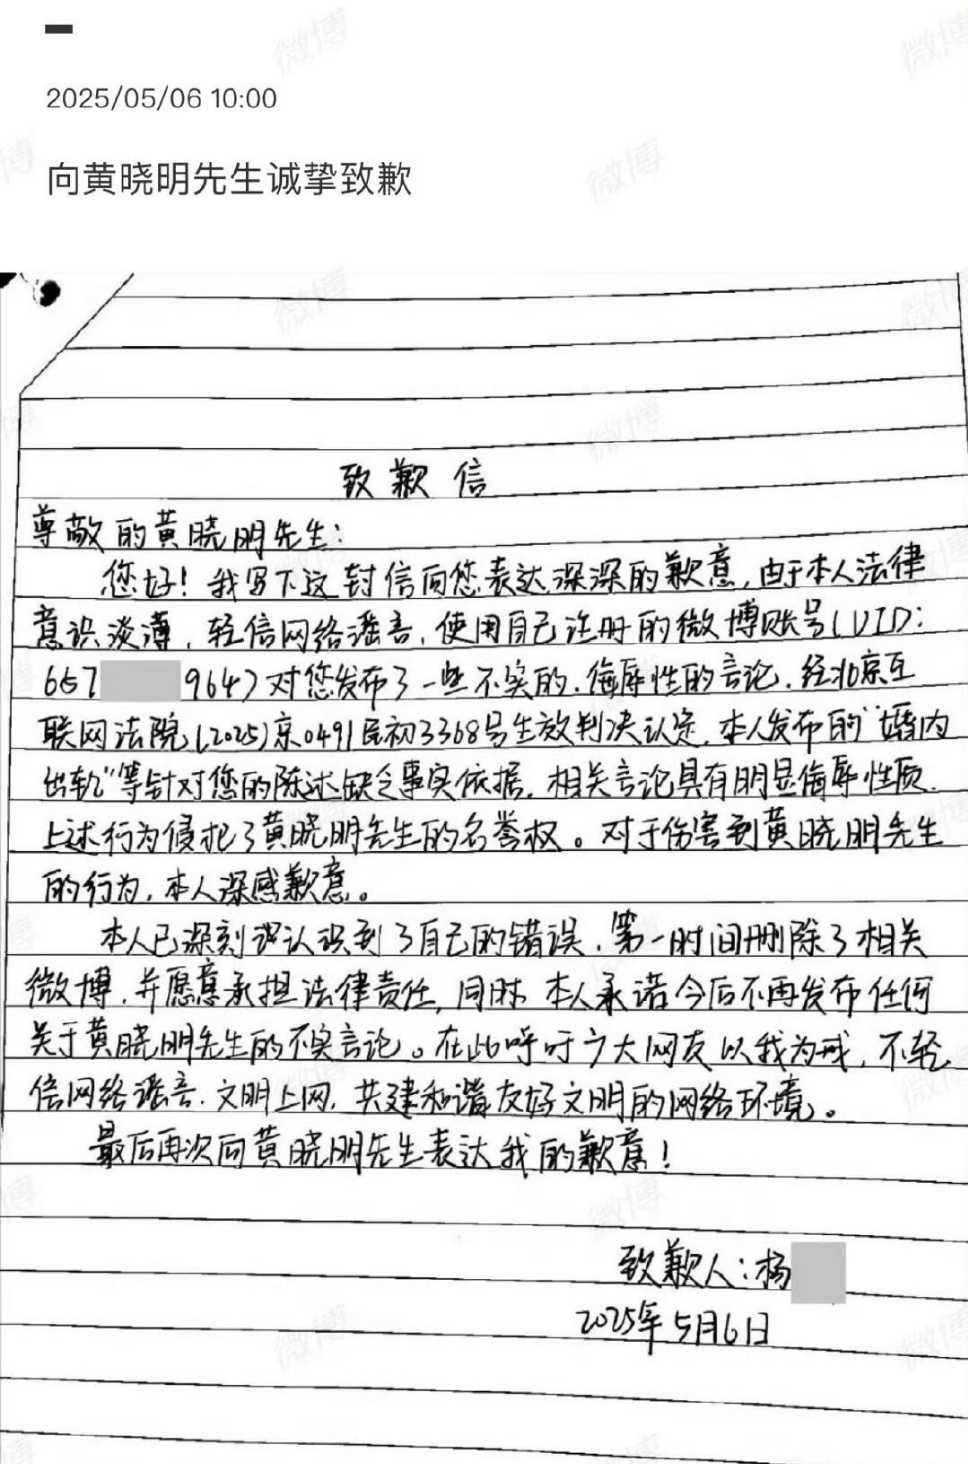 2025/05/06 10:00
向黄晓明先生诚挚致歉
致歉信
尊敬的黄晓明先生:
您好!我写下这封信向您表达深深的歉意,由于本人法律
意识淡薄,轻信网络谣言,使用自己注册的微博账号(UID:
657 9647)对您发布了一些不实的、侮辱性的言论,经北京互
联网法院(2025)京0491民初3368号生效判决认定,本人发布的"婚内
出轨"等针对您的陈述缺乏事实依据,相关言论具有明显侮辱性质.
上述行为侵犯了黄晓明先生的名誉权。对于伤害到黄晓明先生
的行为,本人深感歉意。
本人已深刻认识到了自己的错误,第一时间删除了相关
微博,并愿意承担法律责任,同时,本人承诺今后不再发布任何
关于黄晓明先生的不实言论。在此呼吁广大网友以我为戒,不轻
信网络谣言,文明上网,共建和谐友好文明的网络环境。
最后再次向黄晓明先生表达我的歉意!
致歉人:杨
2025年5月6日
微博